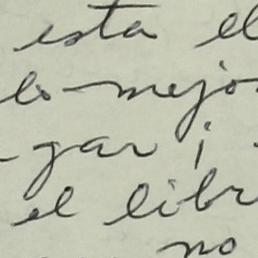 esta el
lo mejo
-gar;
el libr
no